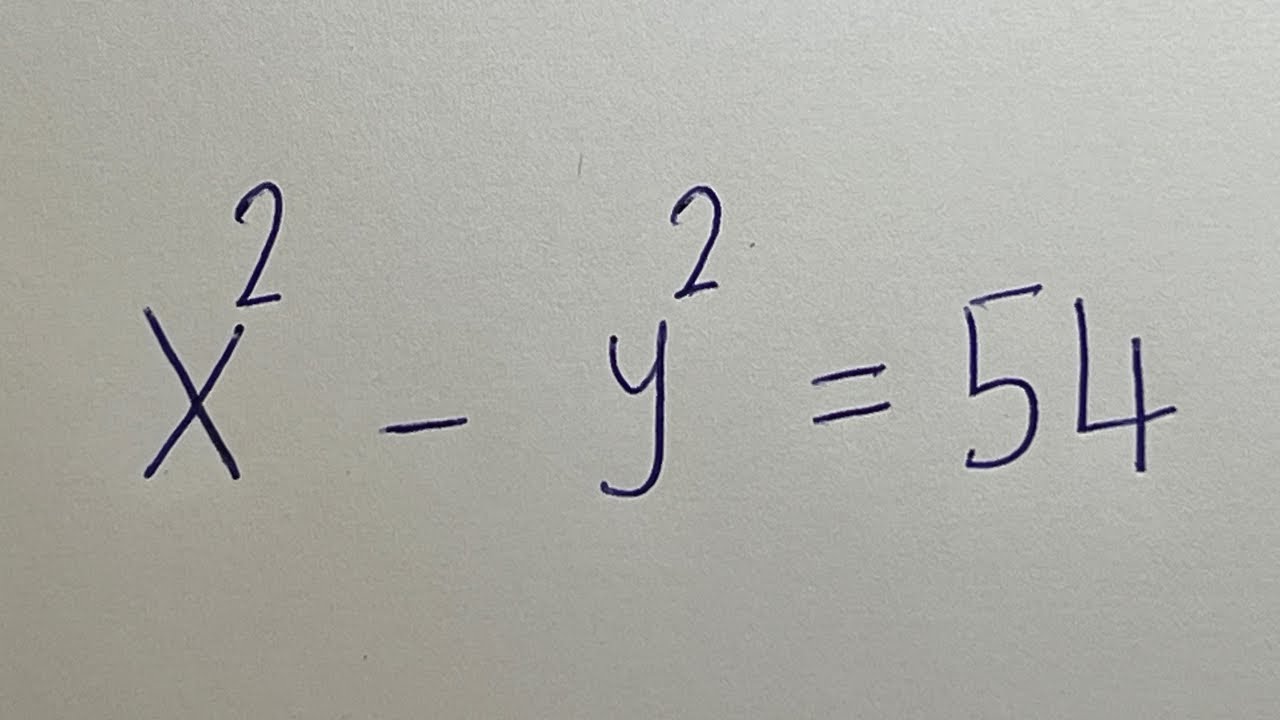 x² - y² = 54